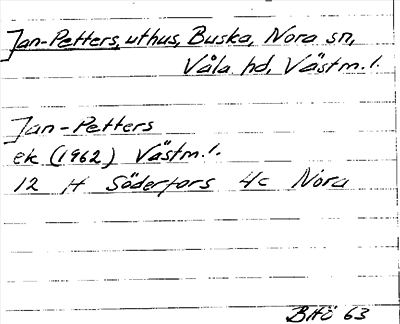 Jan-Petters, uthus, Buska, Nora sn,
Våla hd, Västm.l.
Jan-Petters
ek (1962) Västm.l.
12 H Söderfors 4c Nora
BHÖ 63